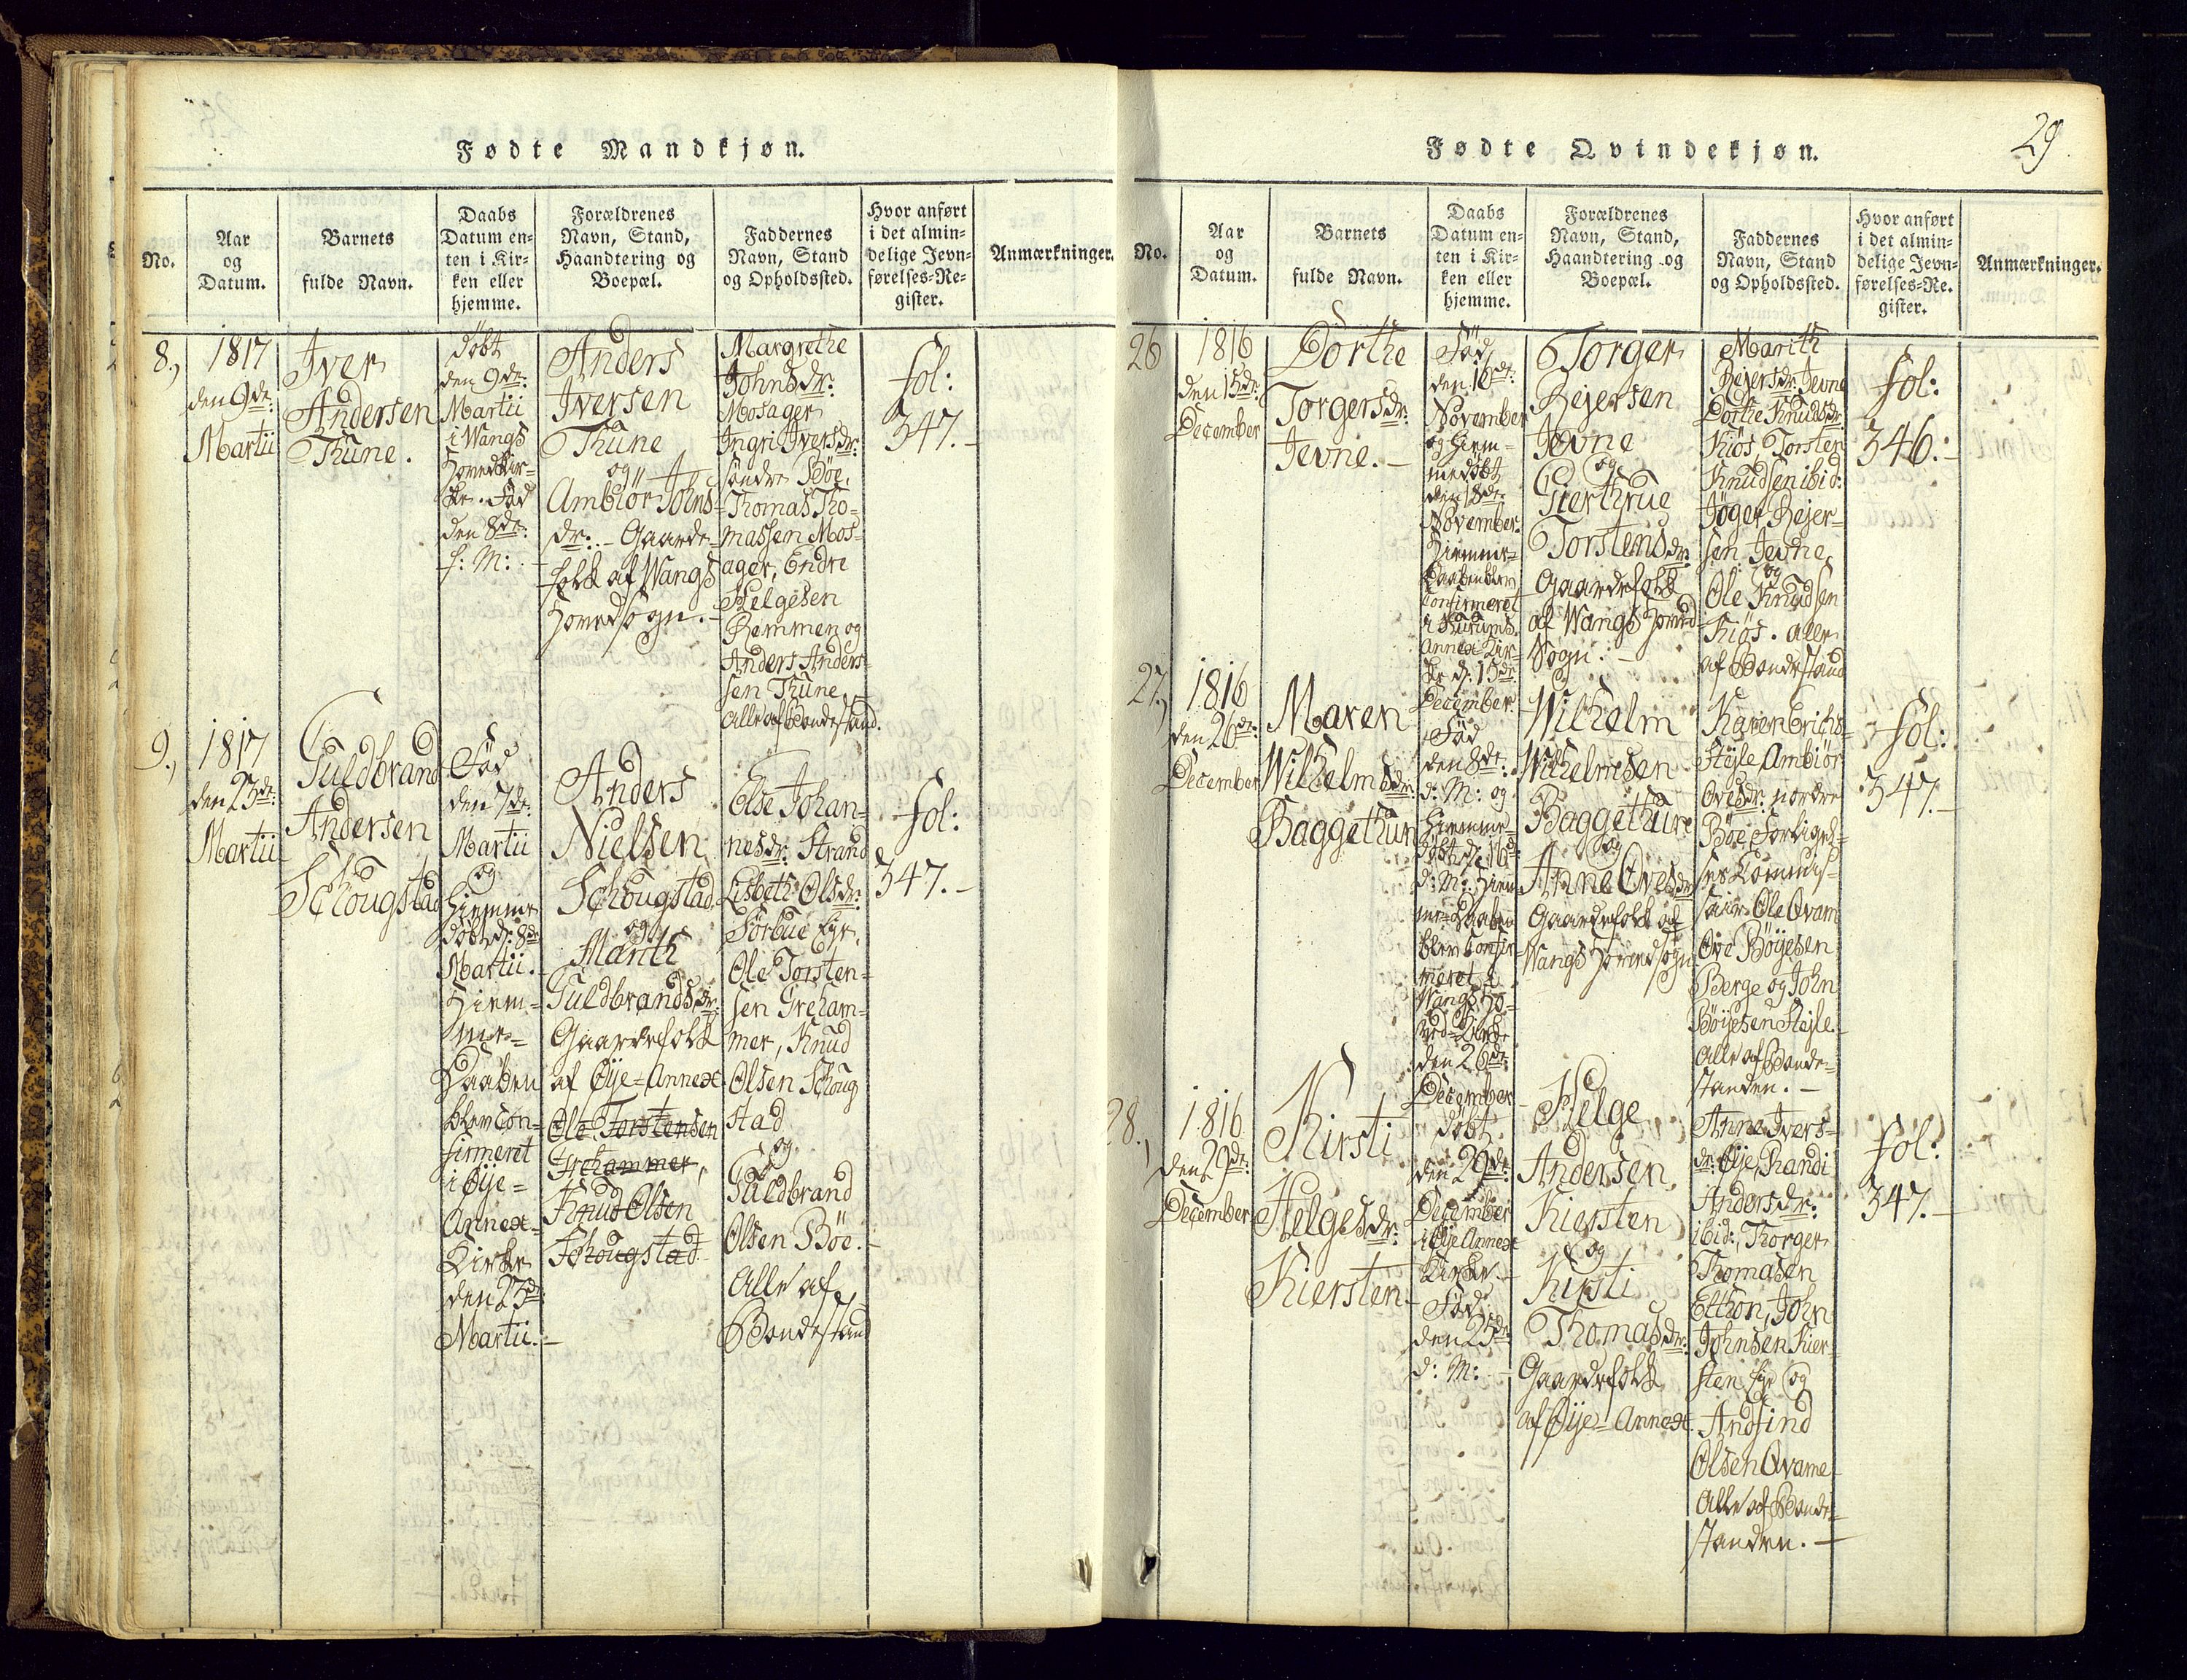 Fødte Mandkjøn.
No.
Aar
og
Datum.
Barnets
fulde Navn.
Daabs
Datum en-
ten i Kir-
ken eller
hjemme.
Forældrenes
Navn, Stand,
Haandtering og
Boepæl.
Faddernes
Navn, Stand
og Opholdssted.
Hvor anført
i det almin-
delige Jevn-
førelses-Re-
gister.
Anmærkninger.
8.,
1817
den 9de:
Martii
Iver
Andersen
Thune.
Döbt
den 9de:
Martii
i Wangs
Hovedkir-
ke. Fød
den 8de:
s: M:
Anders
Iversen
Thune
og
Ambiör Johns-
dr: - Gaarde-
folk af Wangs
Hovedsogn.
Margrethe
Johnsdr:
Mosager
Ingri Iversdr:
söndre Böe,
Thomas Tho-
massen Mos-
ager, Endre
Helgesen
Remmen og
Anders Anders-
sen Thune
Alle af Bondestand.
fol:
347.-
9.,
1817
den 23de:
Martii
Guldbrand
Andersen
Schougstad
Fød
den 7de:
Martii
og
hiemme
döbt d: 8de
Martii.
Hiem-
me-
Daaben
blev con-
firmeret
i Øije-
Annex-
Kirke
den 23de
Martii.-
Anders
Nielsen
Schougstad
og
Marith
Guldbrandsdr:
Gaardefolk
af Øije-Annex
Ole Torstensen
Grehammer,
Knud Olsen
Schougstad
Else Johan-
nesdr: Strand
Lisbeth Olsdr:
Sörbue Eje,
Ole Torsten-
sen Greham-
mer, Knud
Olsen Schoug
stad
og
Guldbrand
Olsen Böe.-
Alle af
Bondestand
fol:
347.-
Fødte Qvindekjøn.
29.
No.
Aar
og
Datum.
Barnets
fulde Navn.
Daabs
Datum en-
ten i Kir-
ken eller
hjemme.
Forældrenes
Navn, Stand,
Haandtering og
Boepæl.
Faddernes
Navn, Stand
og Opholdssted.
Hvor anført
i det almin-
delige Jevn-
førelses-Re-
gister.
Anmærkninger.
26
1816
den 15de:
December
Dorthe
Torgersdr:
Jevne.-
Fød
den 16de:
November
og hiem-
medöbt
den 18de:
November.
Hiemme-
Daaben blev
Confirmeret
i Hurums
Annex Kir-
ke d: 15de:
December
Torger
Rejersen
Jevne
og
Gierthrue
Torstensdr:
Gaardefolk
af Wangs Hoved
Sogn.-
Marith
Rejersdr: Jevne
Dorthe Knudsdr:
Kiös, Torsten
Knudsen ibid:
Jöger Rejer-
sen Jevne
og
Ole Knudsen
Kiös. alle
af Bondestand
fol:
346:-
27.,
1816
den 26de:
December
Maren
Wilhelmsdr:
Baggethun
Fød
den 8de:
d: M: og
hiemme-
döbt d: 16de
d: M: Hiem
me-Daaben
blev Confir-
meret i
Wangs Ho-
ved-Kirke
den 26de:
December
Wilhelm
Wilhelmsen
Baggethun
og
Anne Ovesdr
Gaardefolk af
Wangs Hovedsogn
Karen Erichs-
Stejle Ambiör
Ovesdr: nordre
Böe Forligel-
ses Commis-
sair Ole Qvam
Ove Böyesen
Berge og John
Böijesen Stejle.-
Alle af Bonde-
standen.-
fol:
347.-
28.,
1816
den 29de:
December
Kirsti
Helgesdr:
Kiersten
Döbt
den 29de:
December
i Øije Annex
Kirke.-
Fød
den 25de:
d: M:
Helge
Andersen
Kiersten
og
Kirsti
Thomasdr:
Gaardefolk
af Øije-Annex
Anne Ivers-
dr: Øije, Randi
Andersdr:
ibid:, Thorger
Thomasen
Elthon, John
Johnsen Kier-
sten Eje og
Andfind
Olsen Qvame
Alle af Bonde-
standen.-
fol:
347.-